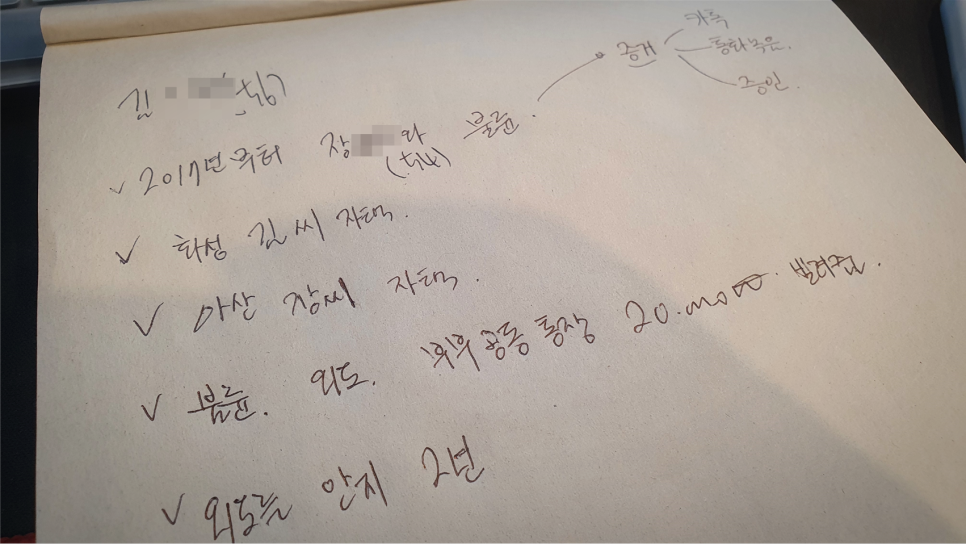 카톡
증거
통화녹음.
증인.
김
2017년부터 장 와 불륜.
화성 김씨 자택.
아산 장씨 자택.
불륜. 외도. 부부공동통장 빌려줌.
외도를 안지 2년